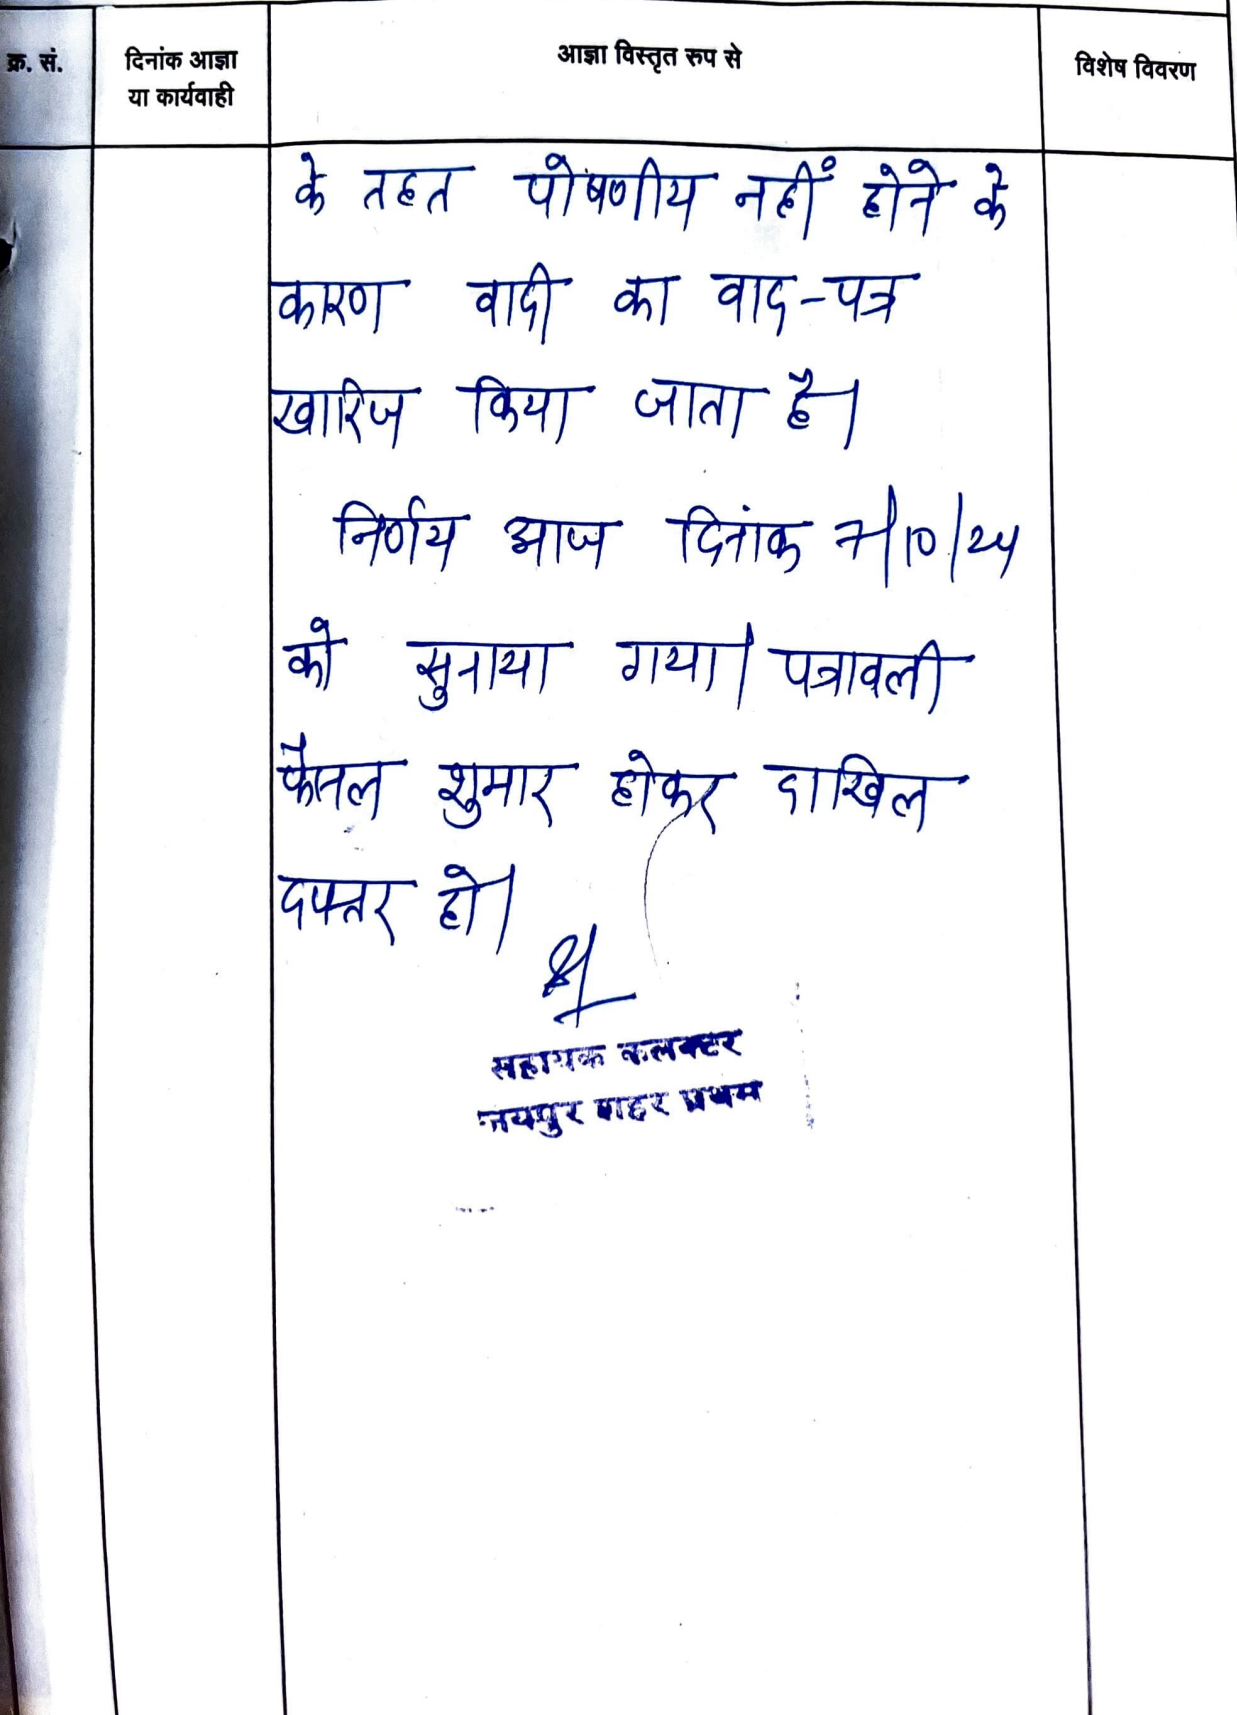 क्र. सं. दिनांक आज्ञा या कार्यवाही आज्ञा विस्तृत रूप से विशेष विवरण
के तहत पोषणीय नहीं होने के
कारण वादी का वाद-पत्र
खारिज किया जाता है।
निर्णय आज दिनांक 7/10/24
को सुनाया गया। पत्रावली
फैसल शुमार होकर दाखिल
दफ्तर हो।
सहायक कलक्टर
जयपुर शहर प्रथम